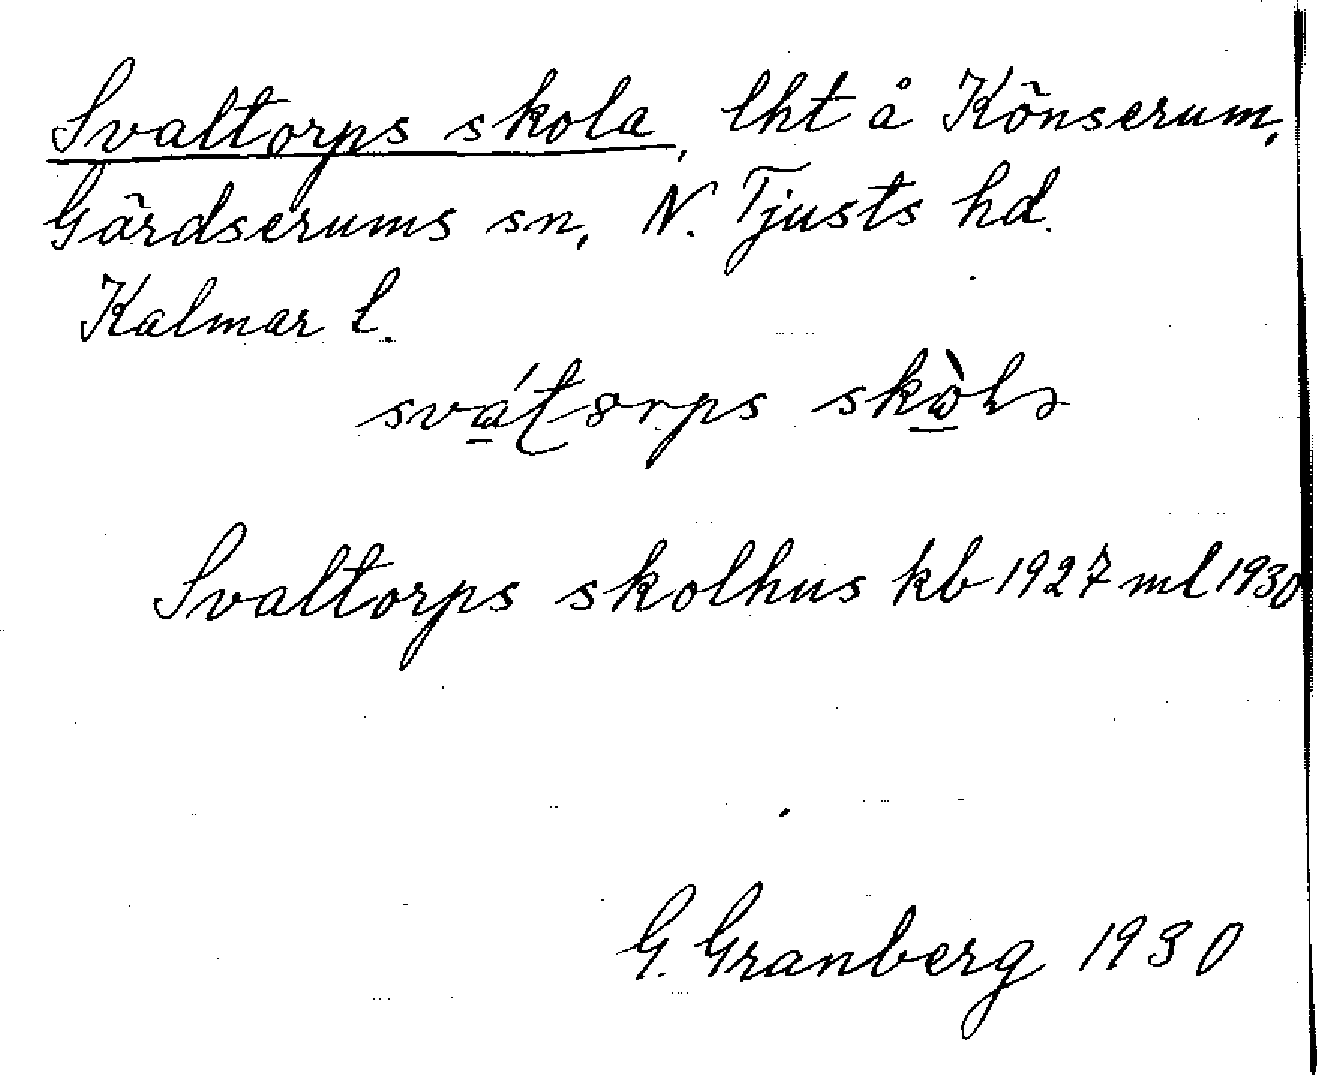 Svaltorps skola, lht å Könserum,
Gärdserums sn, N. Tjusts hd.
Kalmar l.
svátorps skòla
Svaltorps skolhus kb 1927 ml 1930
G. Granberg 1930